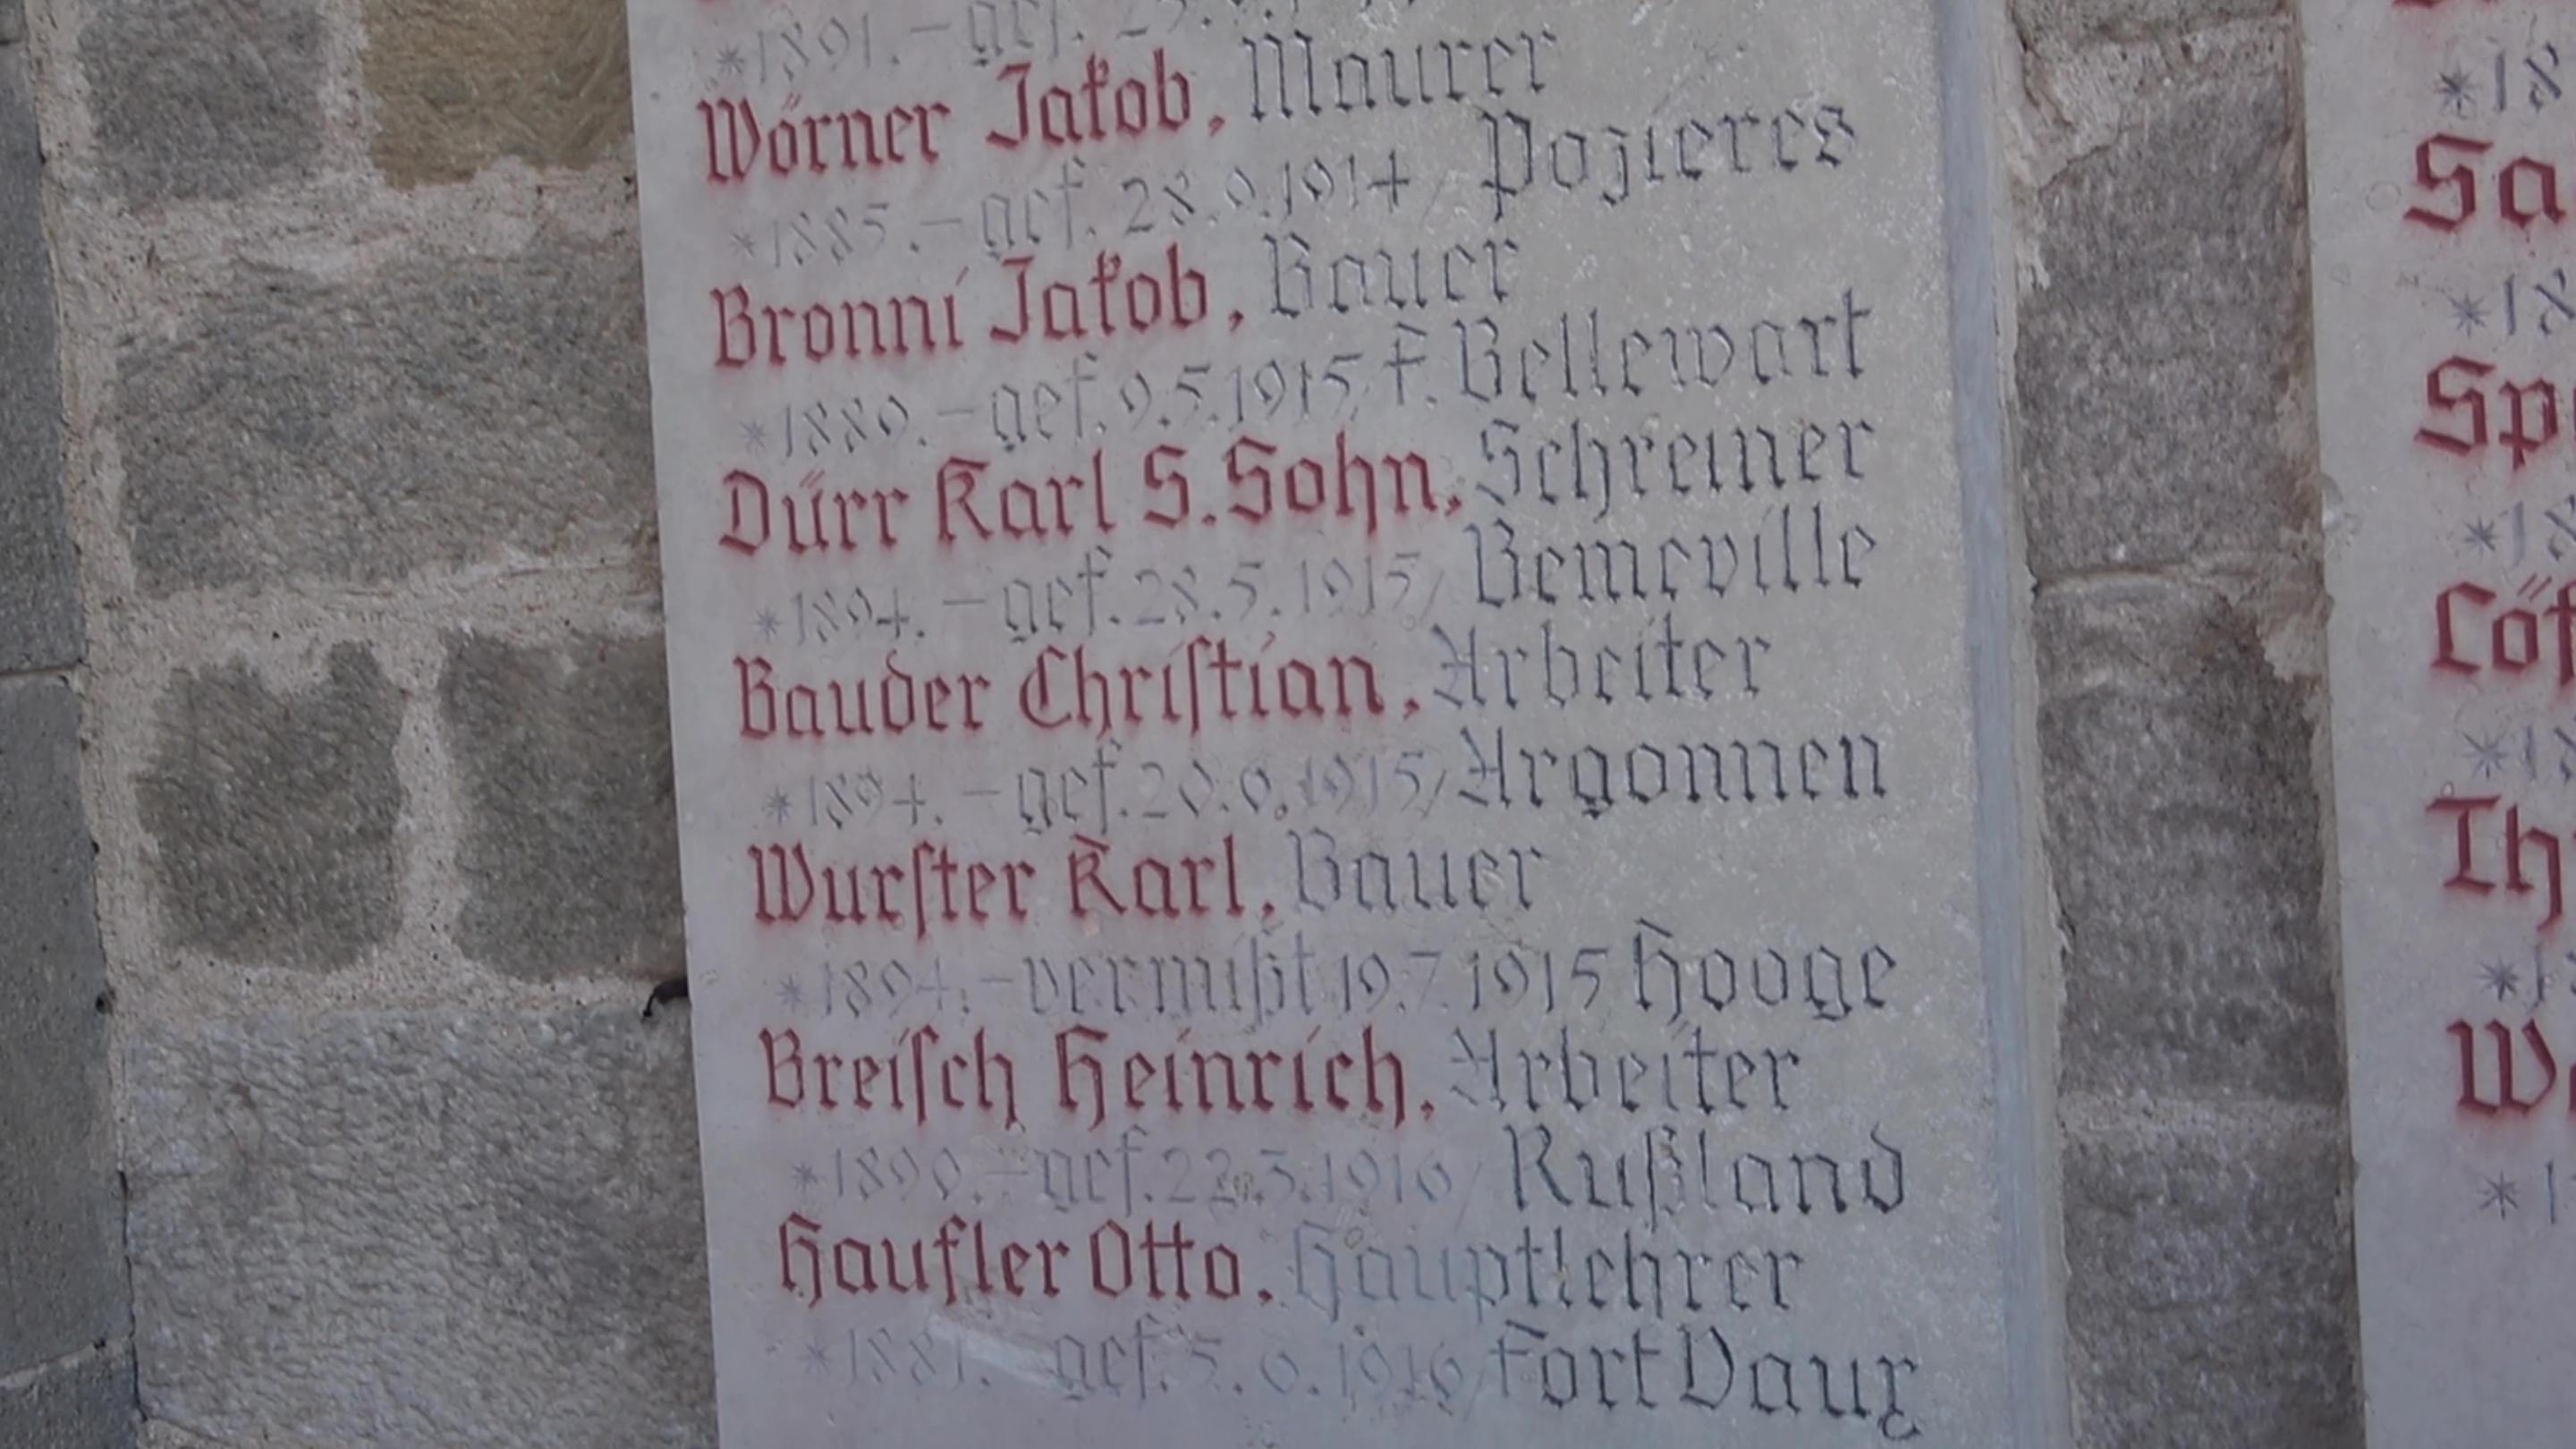 *1891. – gef.
Wörner Jakob, Maurer
*1885. – gef. 28.9.1914 / Pozieres
Bronni Jakob, Bauer
*1889. – gef. 9.5.1915 F. Bellewart
Dürr Karl S. Sohn, Schreiner
*1894. – gef. 28.5.1915 / Bemeville
Bauder Christian, Arbeiter
*1894. – gef. 1915 / Argonnen
Wurster Karl, Bauer
*1894. – vermißt 19.7.1915 Hooge
Breisch Heinrich, Arbeiter
*1890. – gef. 22.3.1916 / Rußland
Haufler Otto, Hauptlehrer
*1881. gef. 5.6.1916 / Fort Vaux
*18
Sa
*18
Sp
*18
Löf
*18
Th
*1
W
*1